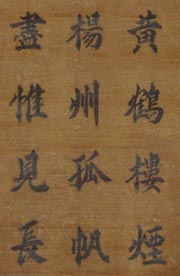 黃鶴樓煙
楊州孤帆
盡惟見長